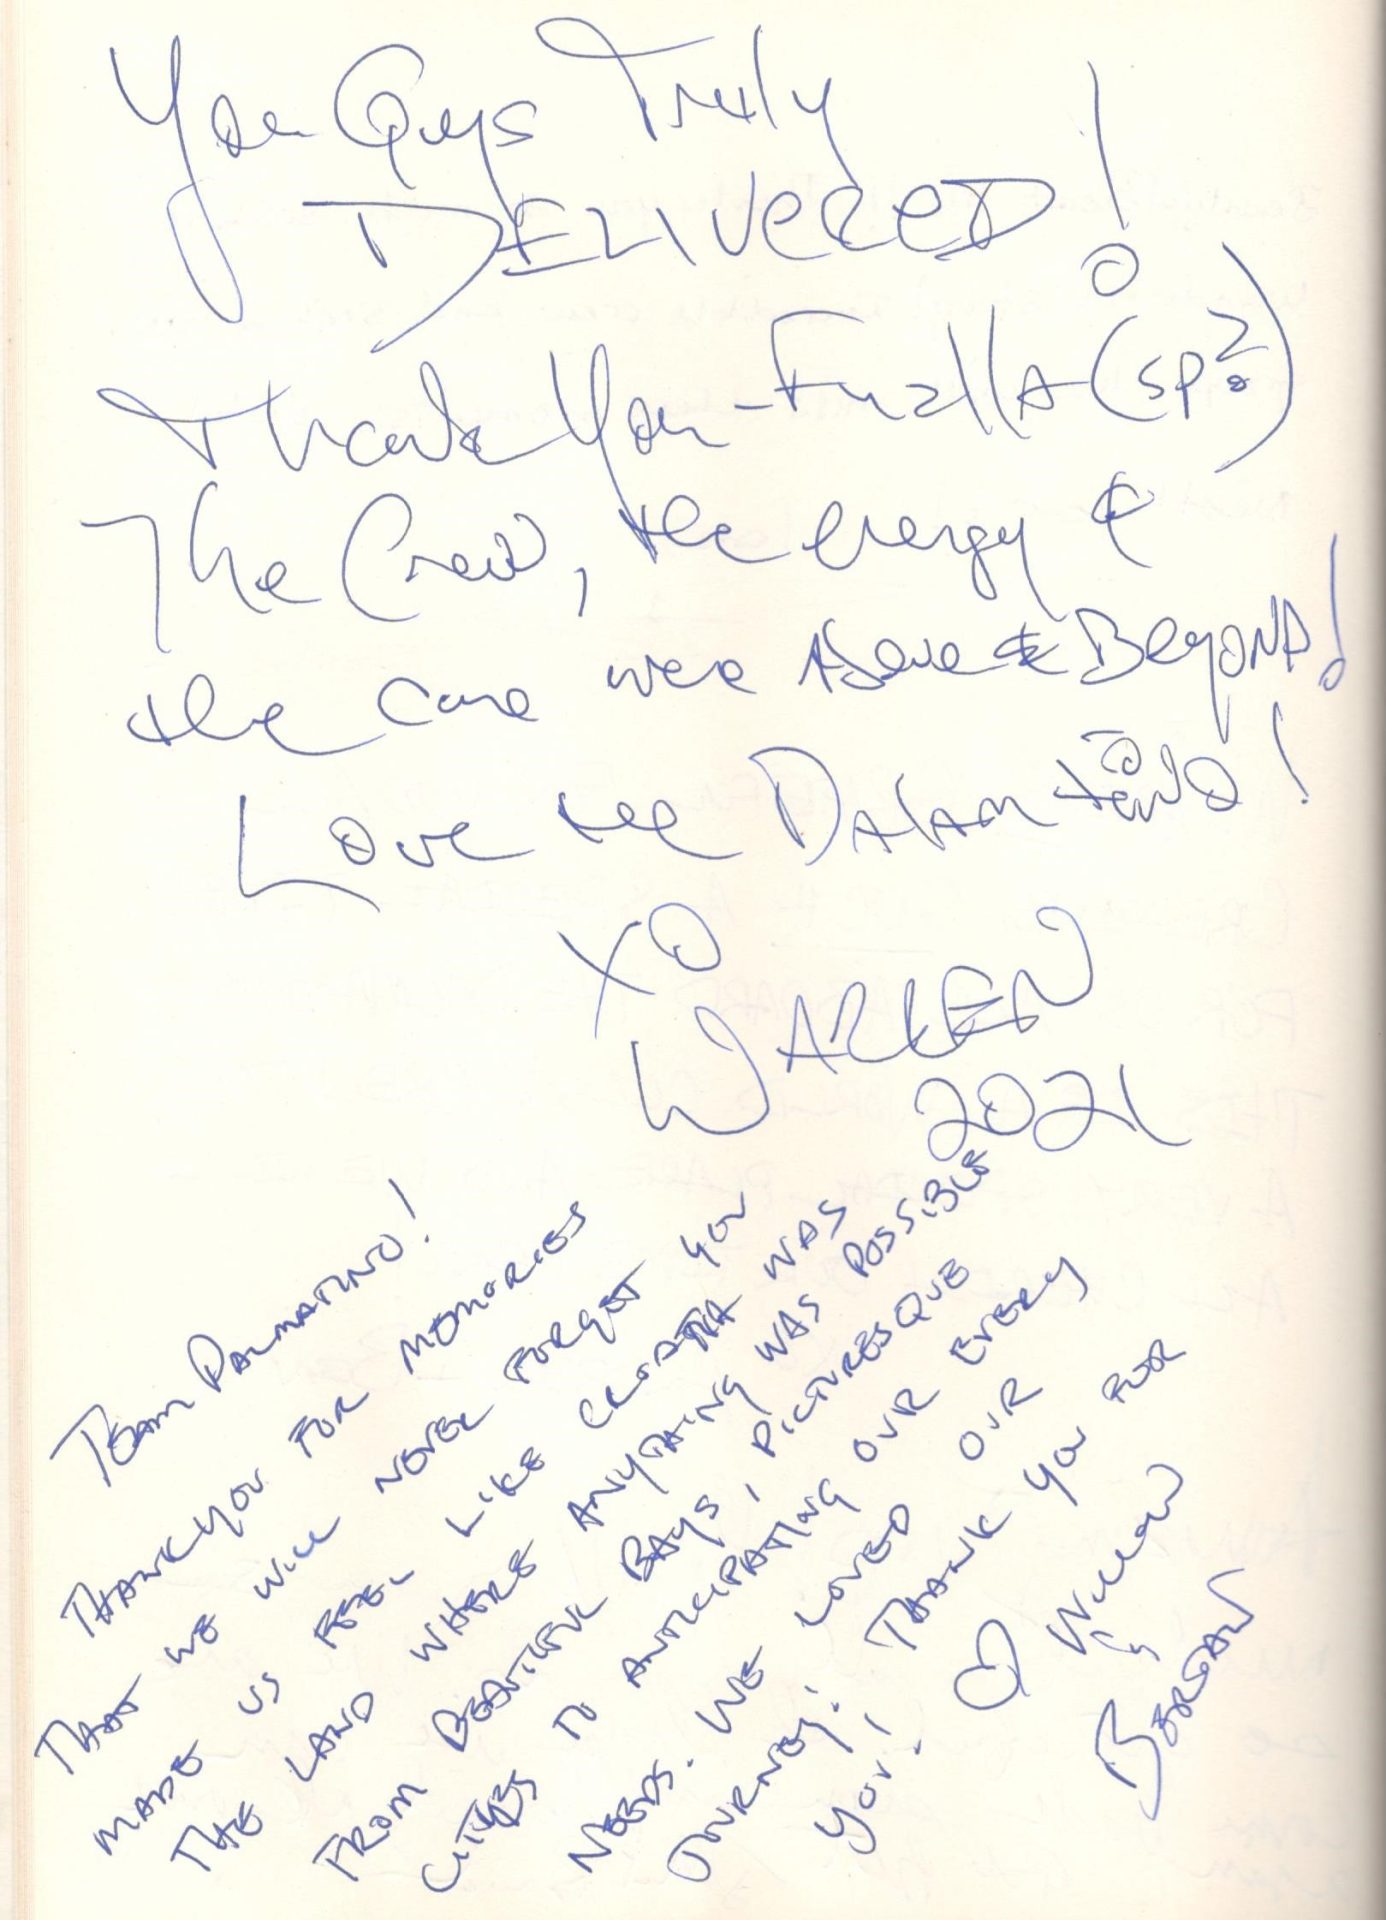 You Guys Truly
DELIVERED!
Thank You - Fuzlla (sp?)
The Crew, the energy &
the care were Above & Beyond!
Love the Dalamtino!
XO
WARREN
2021
TEAM DALMATINO!
THANK YOU FOR MEMORIES
THAT WE WILL NEVER FORGET YOU
MADE US FEEL LIKE CROATIA WAS
THE LAND WHERE ANYTHING WAS POSSIBLE
FROM BEATIFUL BAYS, PICTURESQUE
CITIES TO ANTICIPATING OUR EVERY
NEEDS. WE LOVED OUR
JOURNEY! THANK YOU FOR
YOU!
WILLOW
&